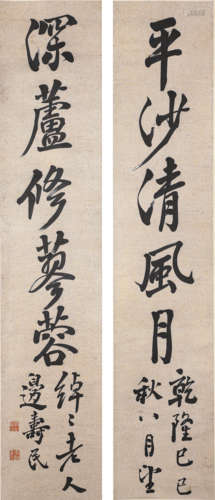 平沙清風月
乾隆己巳
秋八月望
深蘆修蓼蓉
綽〻老人
邊壽民